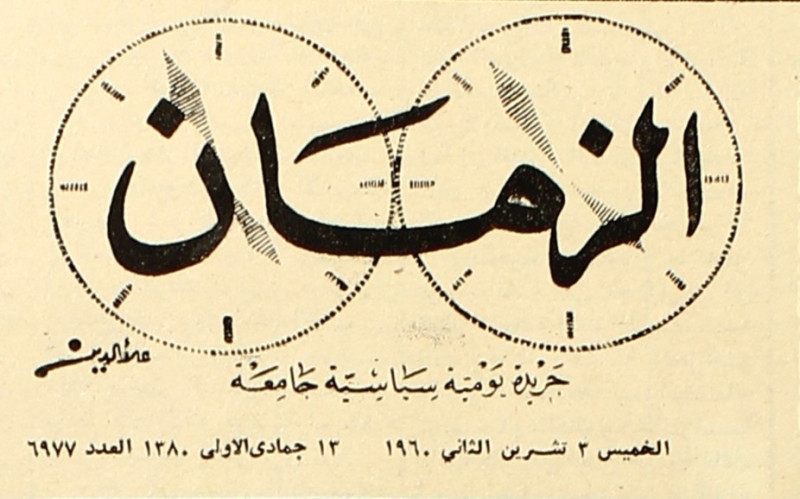 الزمان
علاءالدين
جريدة يومية سياسية جامعة
الخميس ٣ تشرين الثاني ١٩٦٠ ١٣ جمادى الاولى ١٣٨٠ العدد ٦٩٧٧